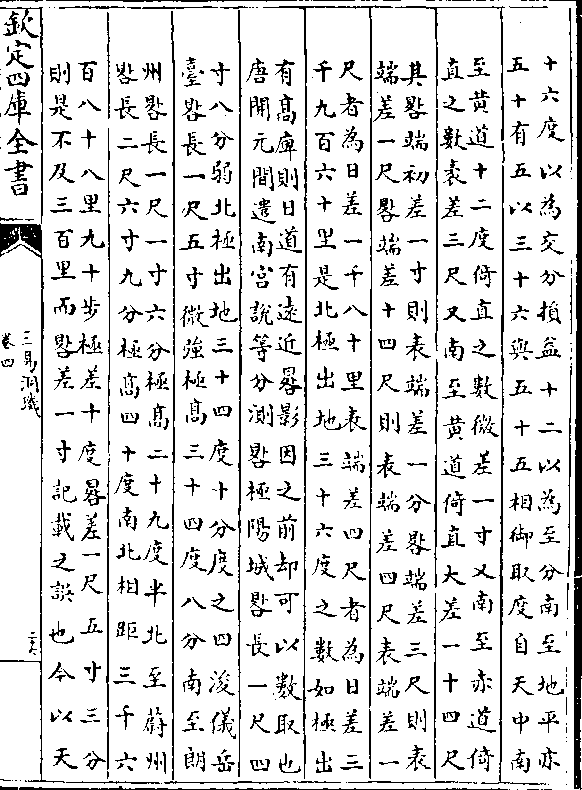 十六度以為交分損益十二以為至分南至地平亦
五十有五以三十六與五十五相御取度自天中南
至黄道十二度倚直之數微差一寸又南至赤道倚
直之數表差三尺又南至黄道倚直大差一十四尺
其晷端初差一寸則表端差一分晷端差三尺則表
端差一尺晷端差十四尺則表端差四尺表端差一
尺者為日差一千八十里表端差四尺者為日差三
千九百六十里是北極出地三十六度之數如極出
有髙庳則日道有逺近晷影因之前却可以數取也
唐開元間遣南宫說等分測晷極陽城晷長一尺四
寸八分弱北極出地三十四度十分度之四浚儀岳
臺晷長一尺五寸微強極髙三十四度八分南至朗
州晷長一尺一寸六分極髙二十九度半北至蔚州
晷長二尺六寸九分極髙四十度南北相距三千六
百八十八里九十步極差十度晷差一尺五寸三分
則是不及三百里而晷差一寸記載之誤也今以天
欽定四庫全書
三易洞璣
卷四